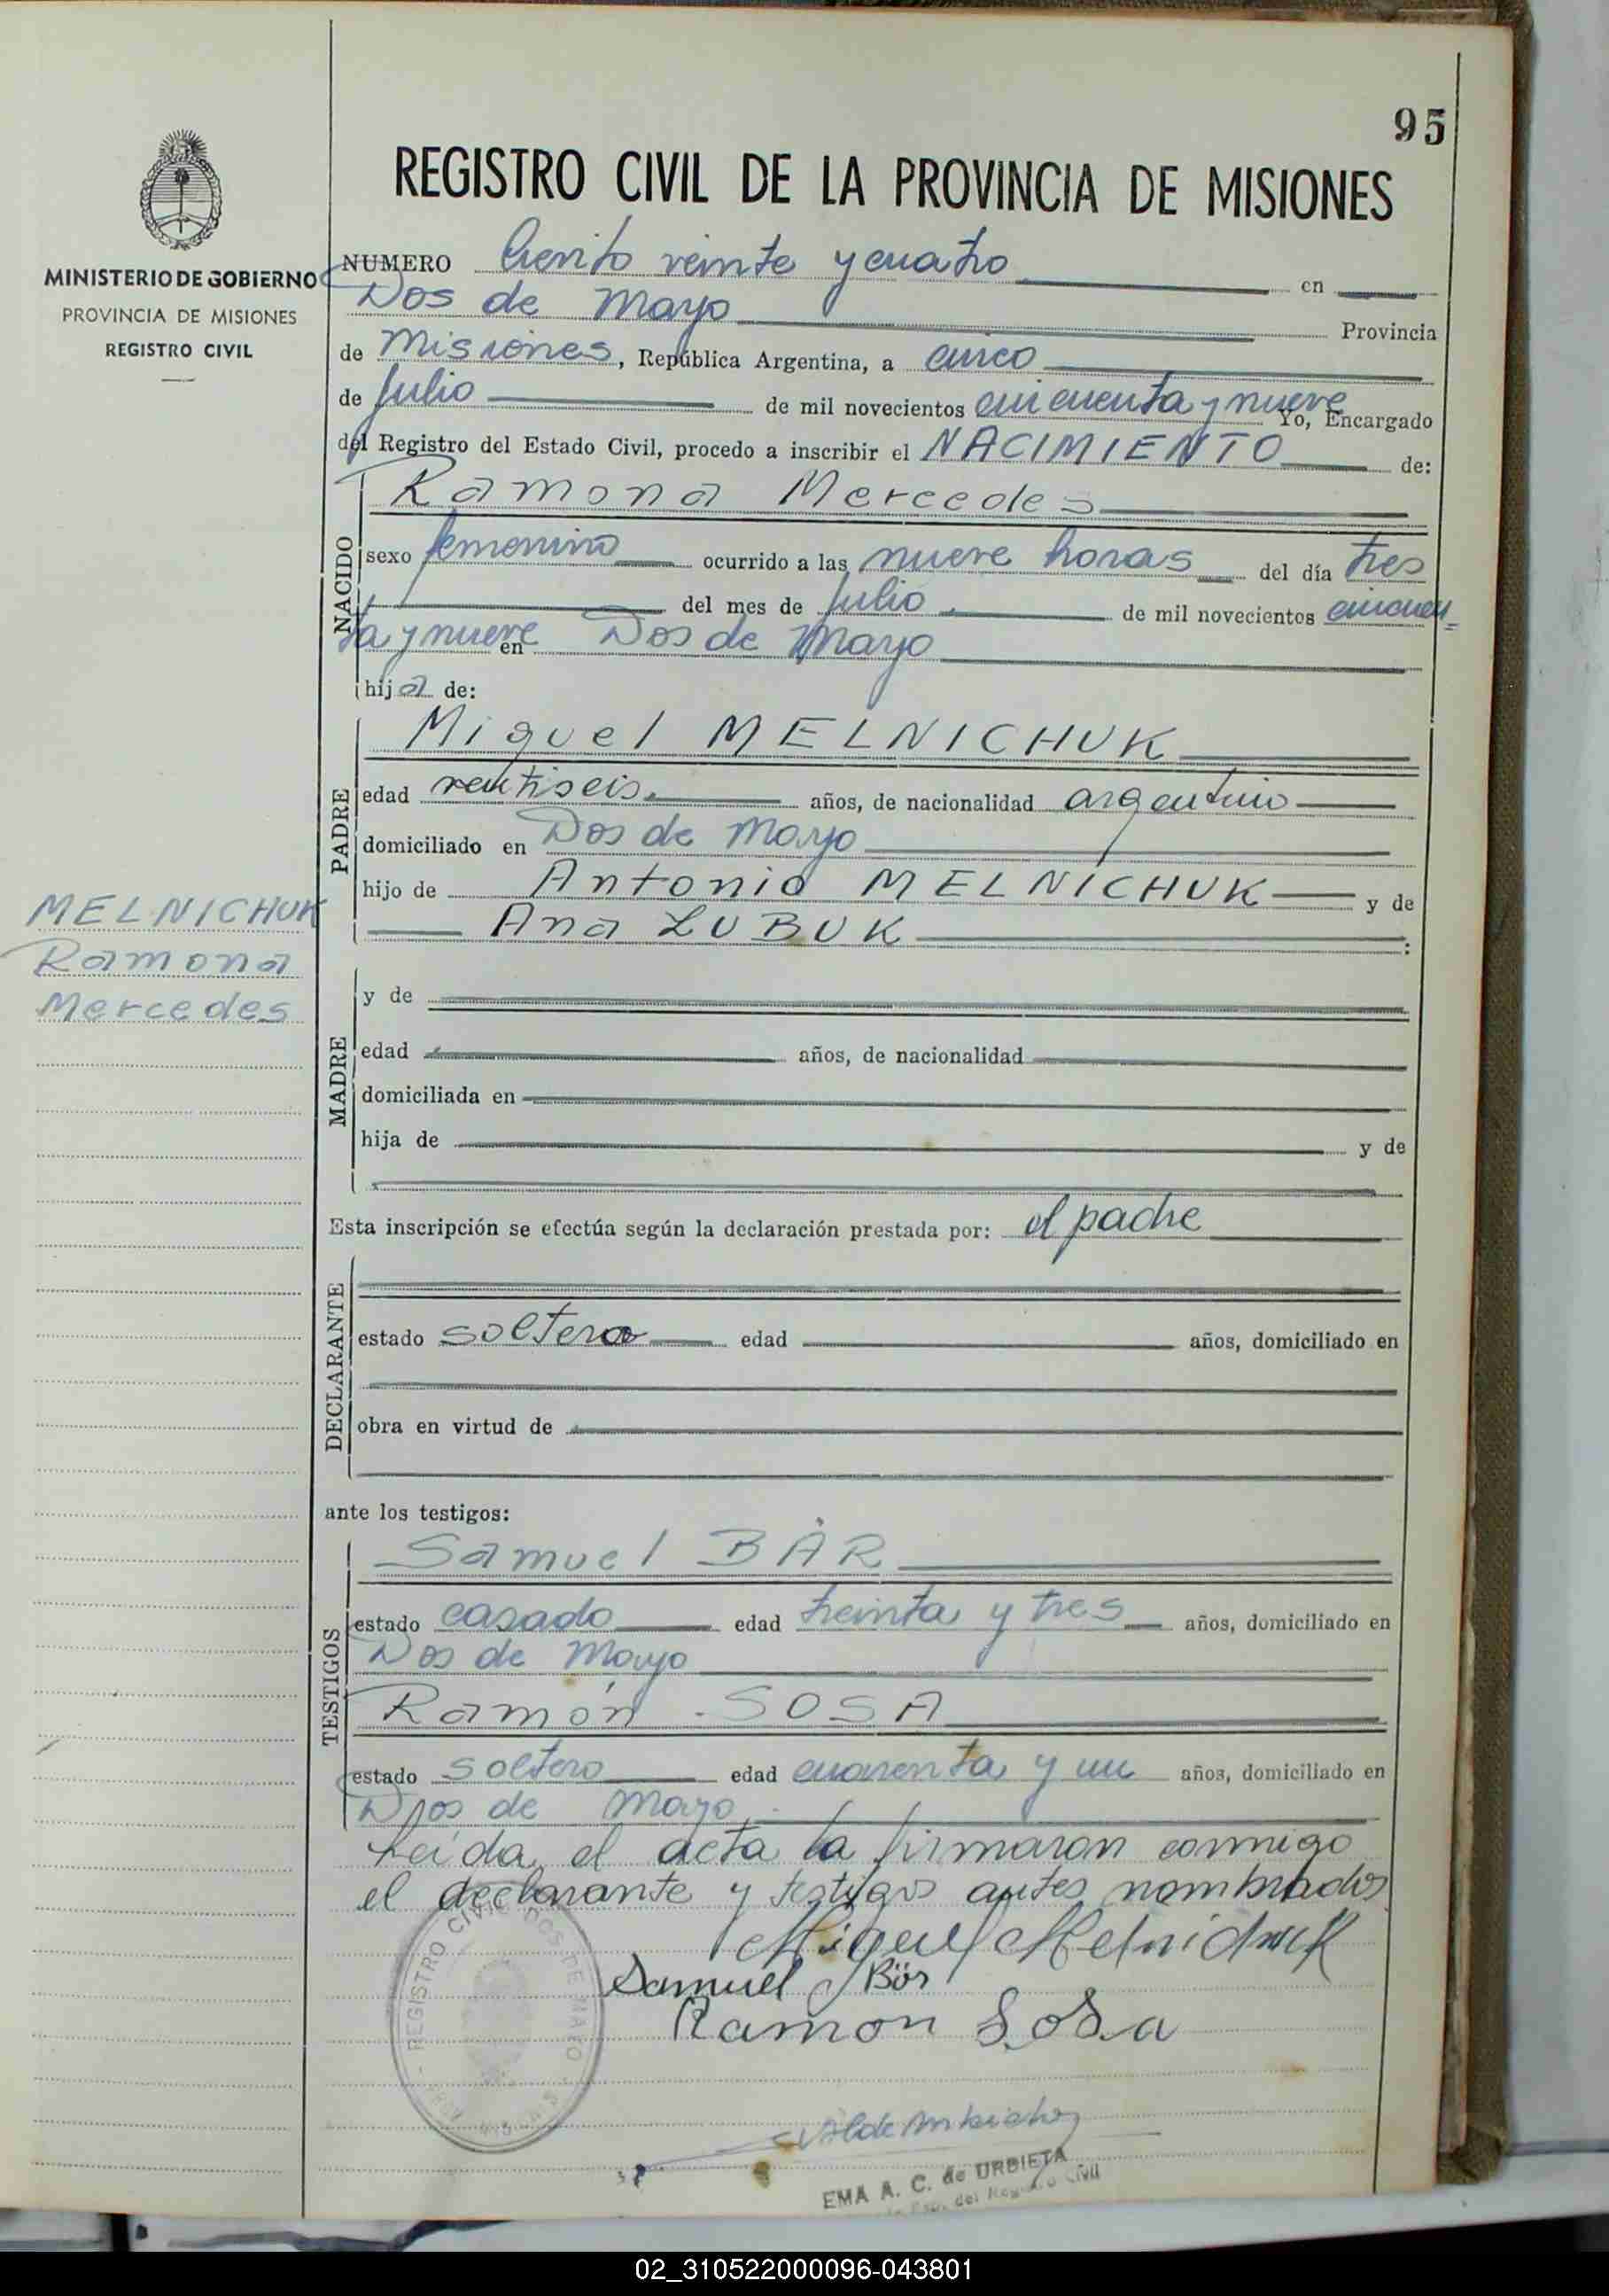 95
REGISTRO CIVIL DE LA PROVINCIA DE MISIONES
MINISTERIO DE GOBIERNO
PROVINCIA DE MISIONES
REGISTRO CIVIL
NUMERO Ciento veinte y cuatro en
Dos de Mayo Provincia
de Misiones, República Argentina, a cinco
de Julio de mil novecientos cincuenta y nueve Yo, Encargado
del Registro del Estado Civil, procedo a inscribir el NACIMIENTO de:
NACIDO
Ramona Mercedes
sexo femenino ocurrido a las nueve horas del día tres
del mes de Julio de mil novecientos cincuen
ta y nueve en Dos de Mayo
hija de:
PADRE
Miguel MELNICHUK
edad veintiseis años, de nacionalidad argentino
domiciliado en Dos de Mayo
hijo de Antonio MELNICHUK y de
Ana LUBUK
MELNICHUK
Ramona
Mercedes
MADRE
y de
edad años, de nacionalidad
domiciliada en
hija de y de
Esta inscripción se efectúa según la declaración prestada por: el padre
DECLARANTE
estado soltero edad años, domiciliado en
obra en virtud de
ante los testigos:
TESTIGOS
Samuel BÄR
estado casado edad treinta y tres años, domiciliado en
Dos de Mayo
Ramón SOSA
estado soltero edad cuarenta y un años, domiciliado en
Dos de Mayo
Leída el acta la firmaron conmigo
el declarante y testigos antes nombrados
Miguel Melnichuk
Samuel Bär
Ramon Sosa
REGISTRO CIVIL DOS DE MAYO
EMA A. C. de URBIETA
del Registro Civil
02_310522000096-043801